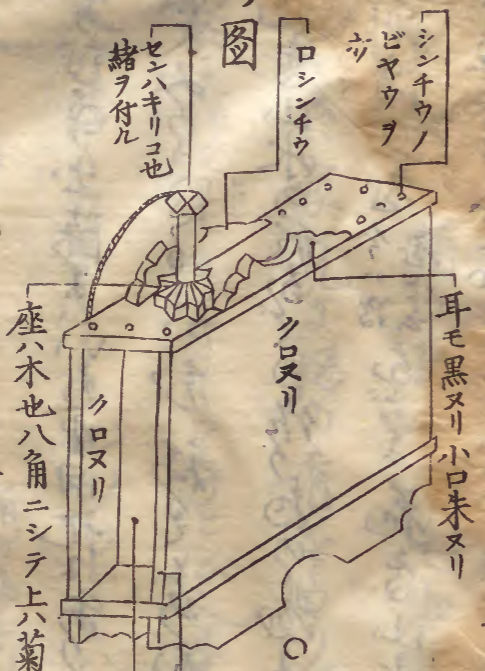 シンチウノ
ビヤウヲ
ロシンチウ
図
センハキリコ也
緒ヲ付ル
耳モ黒ヌリ小口朱ヌリ
クロヌリ
クロヌリ
座ハ木也八角ニシテ上ハ菊